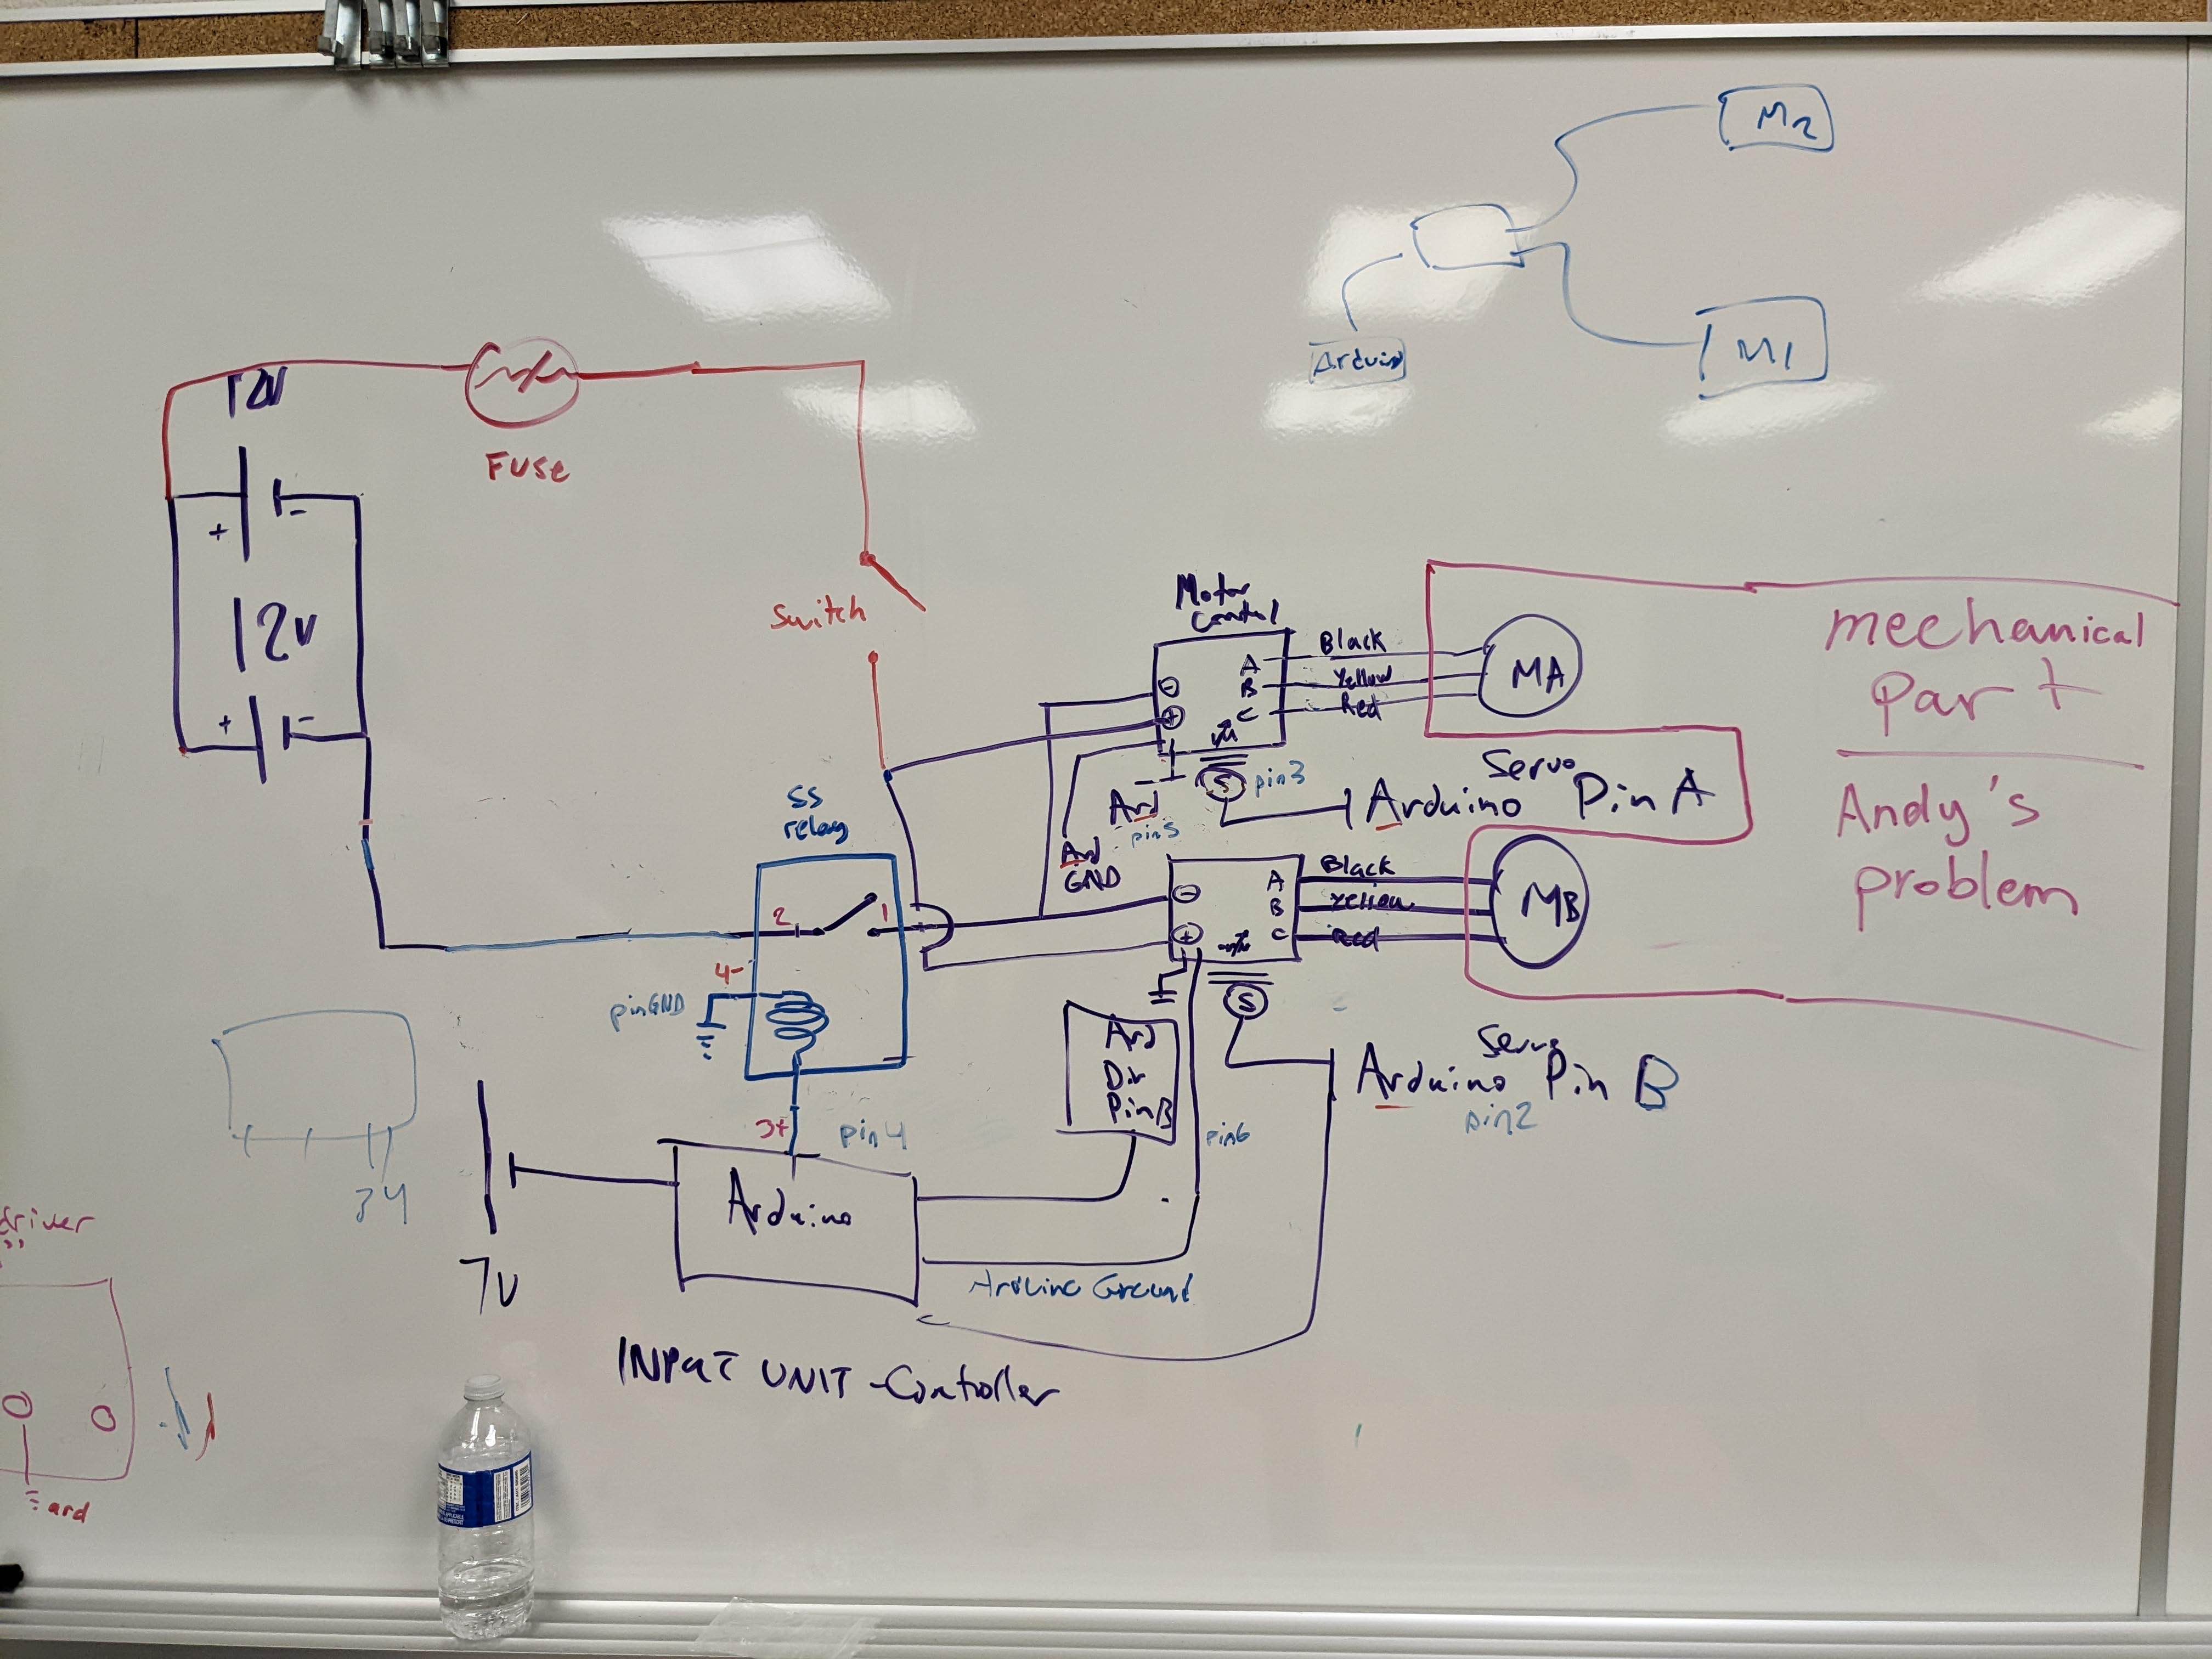 M2
Arduino
M1
12V
Fuse
+
-
12V
+
-
Switch
Motor
Control
-
+
A
B
C
Black
Yellow
Red
MA
mechanical
Part
Andy's
problem
S
pin3
Servo
Arduino Pin A
Ard
pin5
Ard
GND
SS
relay
2
1
4-
pinGND
3+
pin4
-
+
A
B
C
Black
Yellow
Red
MB
S
Servo
Arduino Pin B
pin2
Ard
Dir
PinB
pin6
Arduino
7V
Arduino Ground
INPUT UNIT - Controller
34
driver
ard